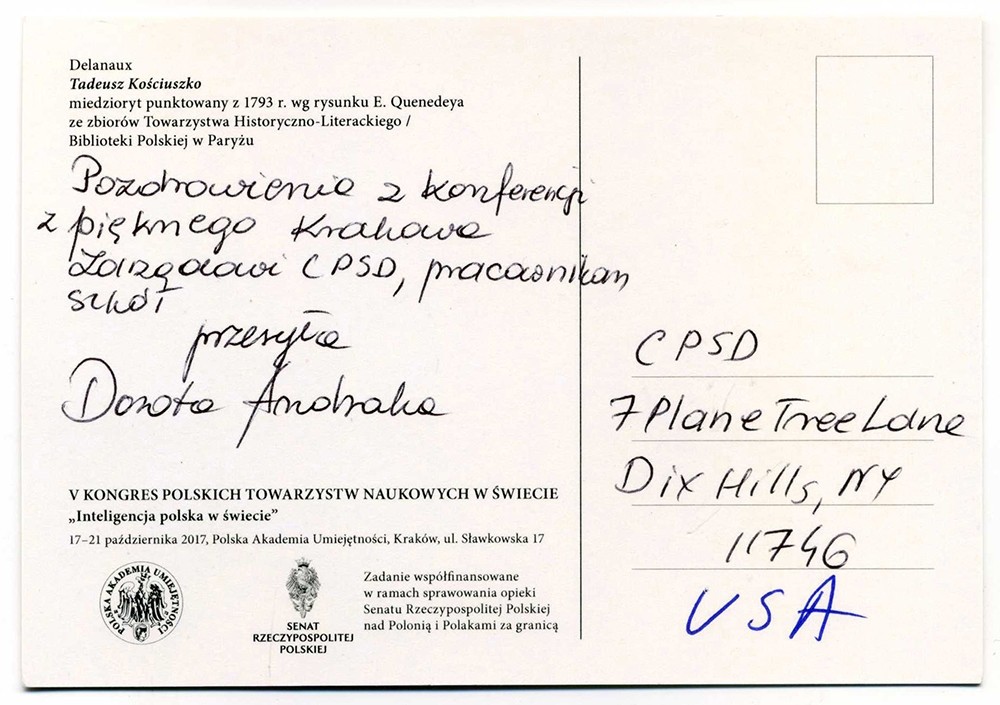 Delanaux
Tadeusz Kościuszko
miedzioryt punktowany z 1793 r. wg rysunku E. Quenedeya
ze zbiorów Towarzystwa Historyczno-Literackiego /
Biblioteki Polskiej w Paryżu
Pozdrowienia z konferencji
z pięknego Krakowa
Zarządowi CPSD, pracownikom
szkół
przesyła
Dorota Andraka
V KONGRES POLSKICH TOWARZYSTW NAUKOWYCH W ŚWIECIE
„Inteligencja polska w świecie”
17–21 października 2017, Polska Akademia Umiejętności, Kraków, ul. Sławkowska 17
POLSKA AKADEMIA UMIEJĘTNOŚCI
SENAT
RZECZYPOSPOLITEJ
POLSKIEJ
Zadanie współfinansowane
w ramach sprawowania opieki
Senatu Rzeczypospolitej Polskiej
nad Polonią i Polakami za granicą
CPSD
7 Plane Tree Lane
Dix Hills, NY
11746
USA